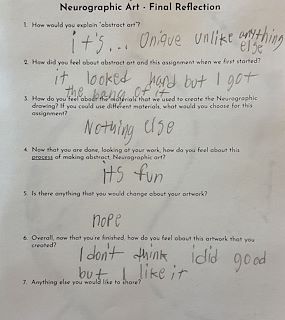 Neurographic Art - Final Reflection
1. How would you explain "abstract art"?
it's... Unique unlike anything
else
2. How did you feel about abstract art and this assignment when we first started?
it looked hard but I got
the hang of it
3. How do you feel about the materials that we used to create the Neurographic
drawing? If you could use different materials, what would you choose for this
assignment?
Nothing else
4. Now that you are done, looking at your work, how do you feel about this
process of making abstract, Neurographic art?
it's fun
5. Is there anything that you would change about your artwork?
nope
6. Overall, now that you're finished, how do you feel about this artwork that you
created?
I don't think I did good
but I like it
7. Anything else you would like to share?